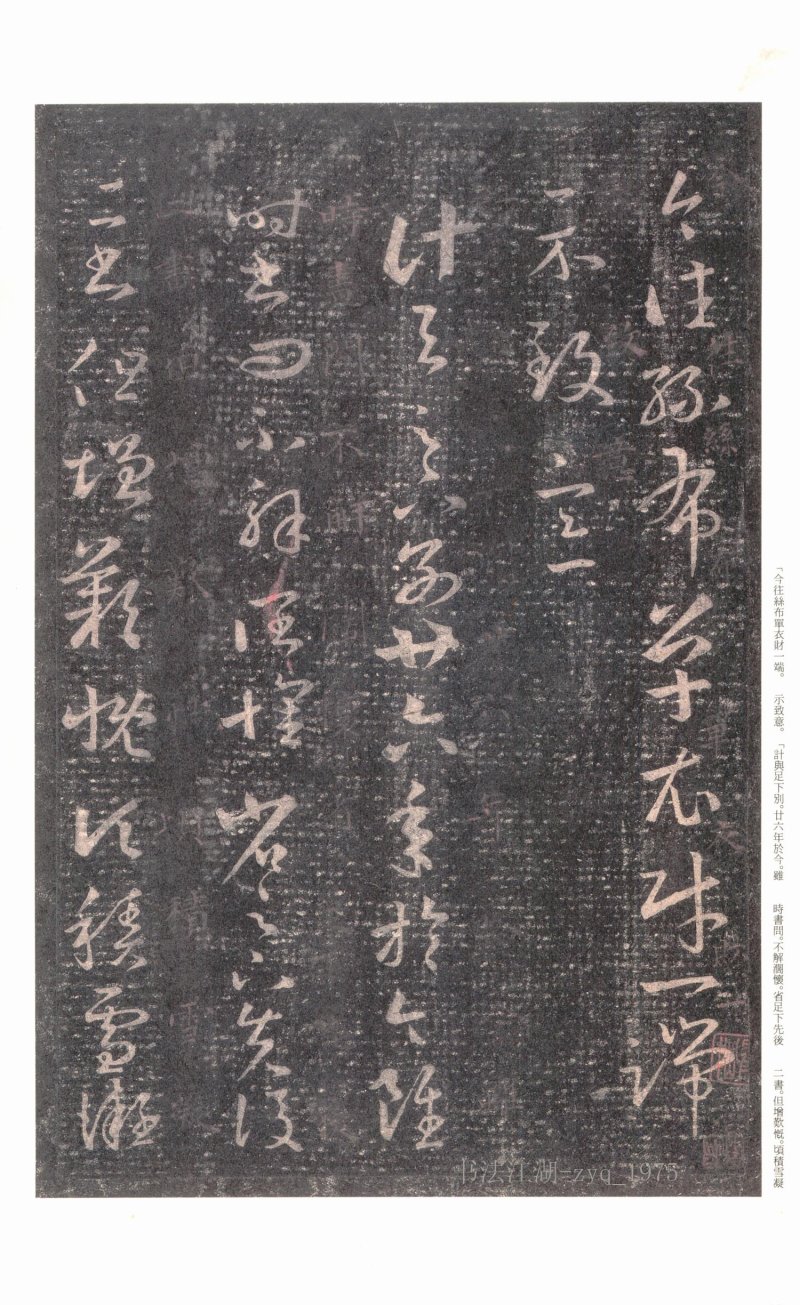 今往絲布單衣財一端
示致意
計與足下別廿六年於今雖
時書問不解闊懷省足下先後
二書但增歎慨頃積雪凝
「今往絲布單衣財一端。 示致意。 「計與足下別。廿六年於今。雖 時書問。不解濶懷。省足下先後 二書。但增歎慨。頃積雪凝
书法江湖-zyq_1975